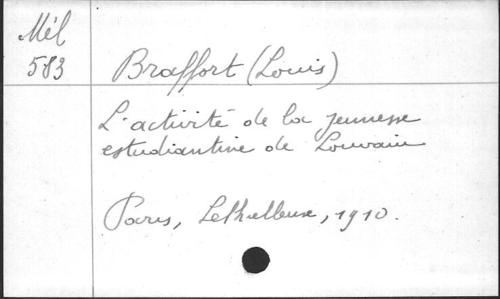 Mél
583
Braffort (Louis)
L'activité de la jeunesse
estudiantine de Louvain
Paris, Lethielleux, 1910.